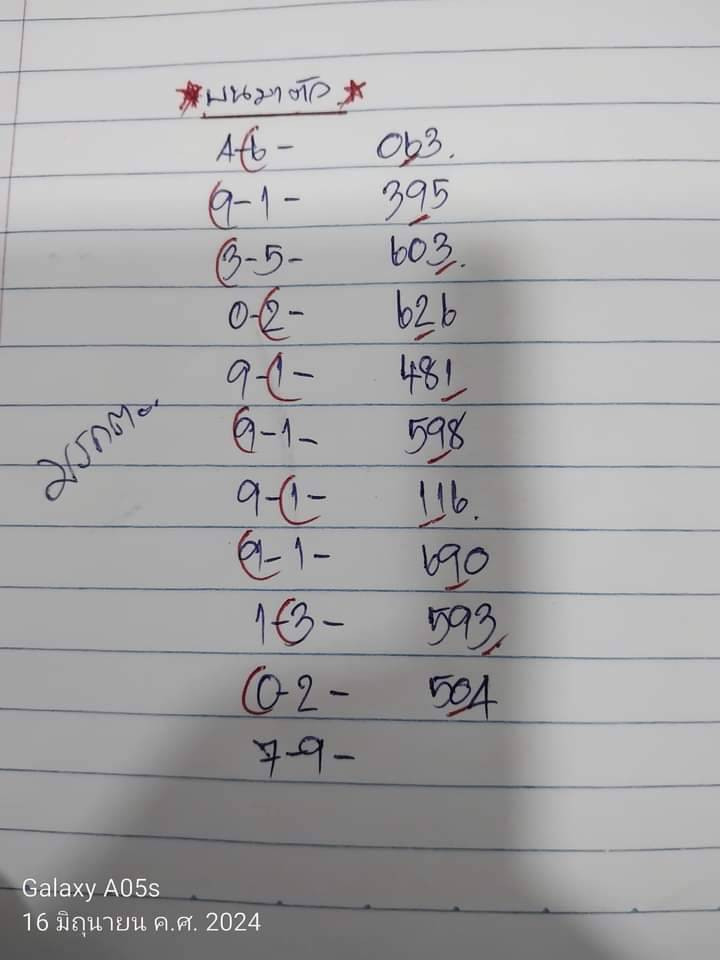 บนมาตัว
4-6- 063.
9-1- 395
3-5- 603.
0-2- 626
9-1- 481
9-1- 598
9-1- 116.
9-1- 690
1-3- 593
0-2- 504
7-9-
Galaxy A05s
16 มิถุนายน ค.ศ. 2024